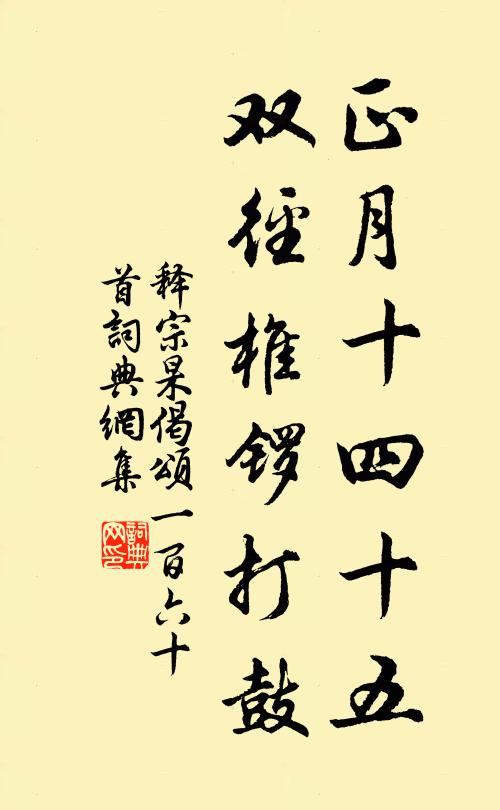 正月十四十五
双徑椎锣打鼓
释宗杲偈頌一百六十
首詞典網集
詞典网印